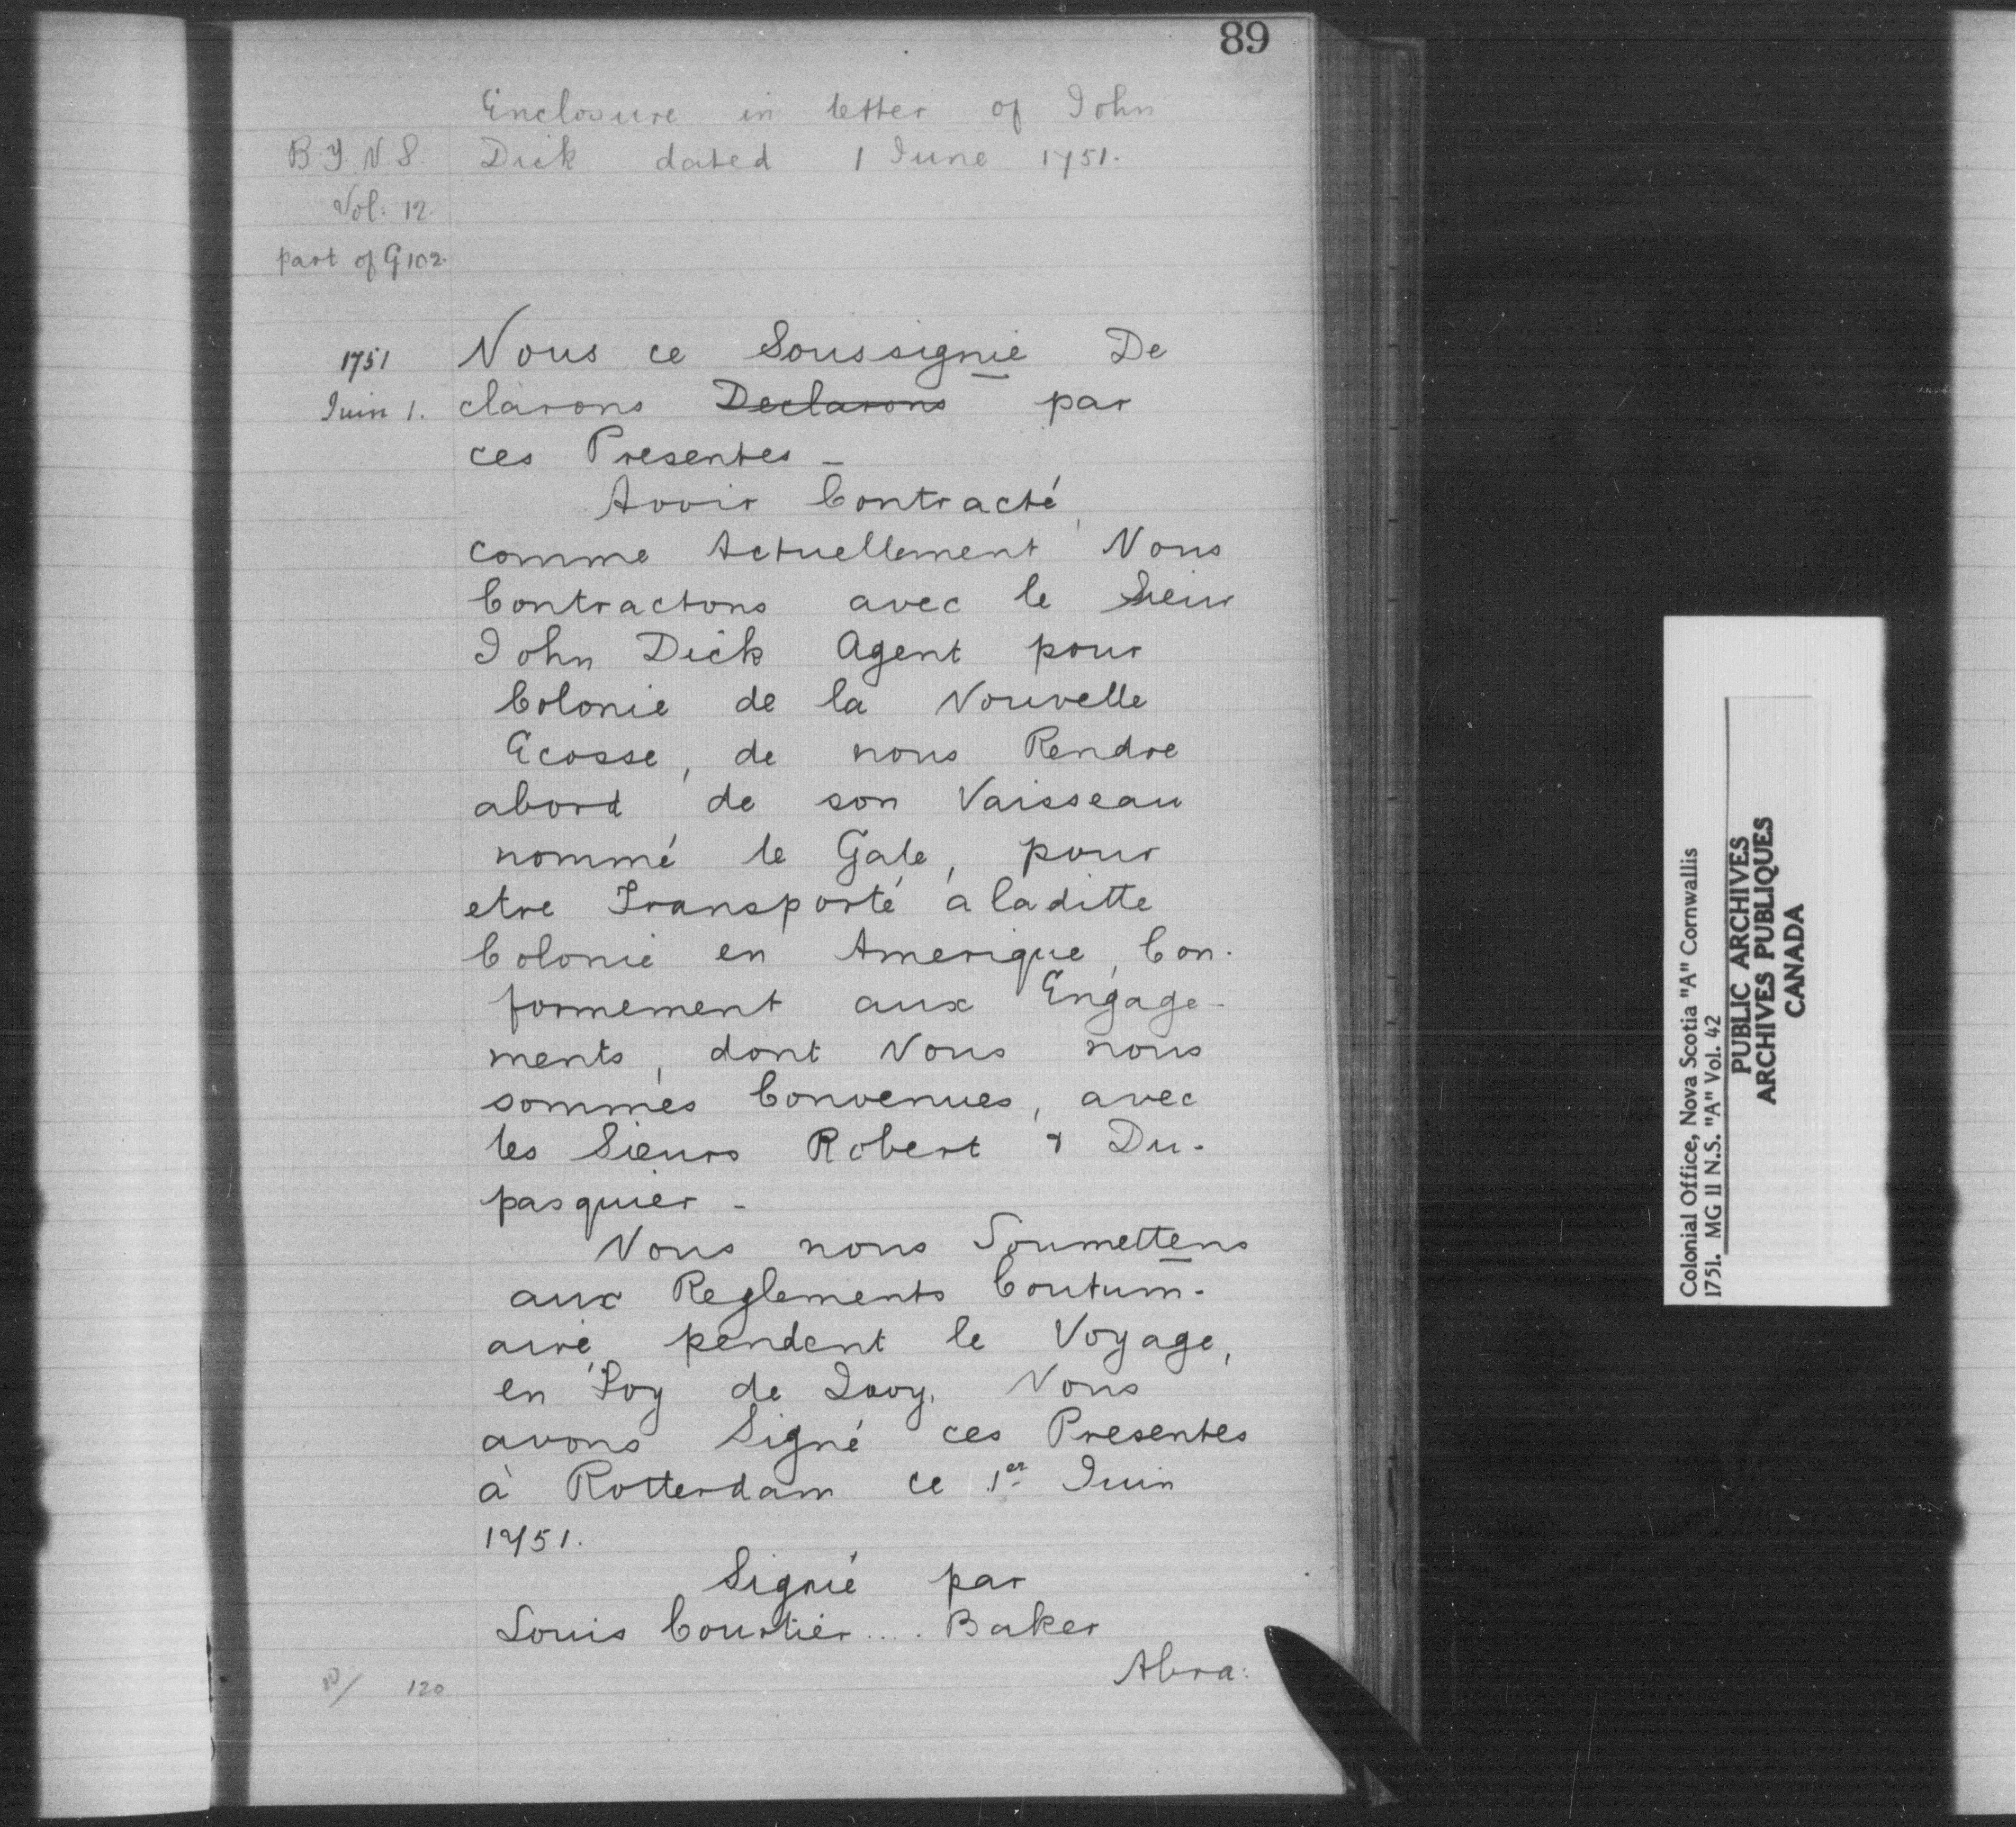 89
Enclosure in letter of John
B.T. N.S. Dick dated 1 June 1751.
Vol: 12.
part of G 102.
1751 Nous ce Soussignié De
Juin 1. clarons ~~Declarons~~ par
ces Presentes -
Avoir Contracté,
comme Actuellement Nous
Contractons avec le Sieur
John Dick Agent pour
Colonie de la Nouvelle
Ecosse, de nous Rendre
abord de son Vaisseau
nommé le Gale, pour
etre Transporté a laditte
Colonie en Amerique, Con-
formement aux Engage-
ments, dont Nous nous
sommes Convenues, avec
les Sieurs Robert & Du-
pasquier -
Nous nous Soumettens
aux Reglements Coutum-
aire, pendent le Voyage,
en Foy de Quoy, Nous
avons Signé ces Presentes
à Rotterdam ce 1er Juin
1751.
Signé par
Louis Courtier .... Baker
Abra:
10/ 120
Colonial Office, Nova Scotia "A" Cornwallis
1751. MG 11 N.S. "A" Vol. 42
PUBLIC ARCHIVES
ARCHIVES PUBLIQUES
CANADA